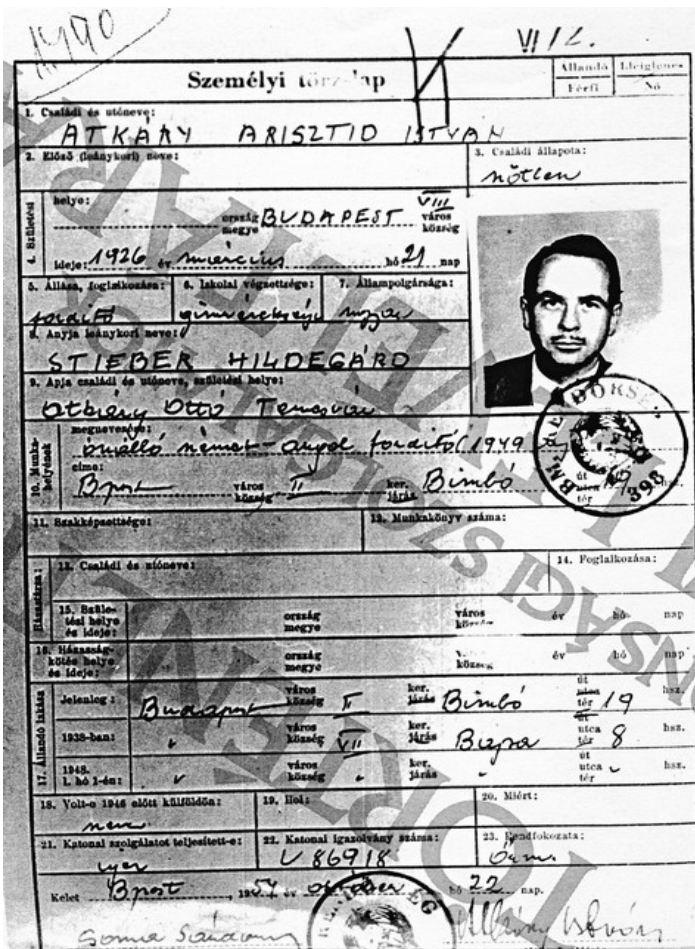 1940
VI/2.
Személyi törzslap
Állandó Ideiglenes
Férfi Nő
1. Családi és utóneve:
ATKÁRY ARISZTID ISTVAN
2. Előző (leánykori) neve:
3. Családi állapota:
nőtlen
4. Születési
helye:
ország megye BUDAPEST VIII város község
ideje: 1926 év március hó 21 nap
5. Állása, foglalkozása:
fordító
6. Iskolai végzettsége:
7. Állampolgársága:
8. Anyja leánykori neve:
STIEBER HILDEGÁRD
9. Apja családi és utóneve, születési helye:
Atkáry Ottó Temesvár
10. Munkahelyének
megnevezése:
önálló német-angol fordító (1949
címe:
Bpest város község II ker. járás Bimbó út utca tér 19
BM. RENDŐRSÉG 398
11. Szakképzettsége:
12. Munkakönyv száma:
Házastársa:
13. Családi és utóneve:
14. Foglalkozása:
15. Születési helye és ideje:
ország megye
város község
év hó nap
16. Házasságkötés helye és ideje:
ország megye
község
év hó nap
17. Állandó lakása
Jelenleg: Budapest város község II ker. járás Bimbó út tér 19 hsz.
1938-ban: " város község VII ker. járás utca tér 8 hsz.
1948. I. hó 1-én: " város község " ker. járás " út utca tér " hsz.
18. Volt-e 1946 előtt külföldön:
nem
19. Hol:
20. Miért:
21. Katonai szolgálatot teljesített-e:
igen
22. Katonai igazolvány száma:
U 86918
23. Rendfokozata:
Kelet Bpest, 1954 év október hó 22 nap.